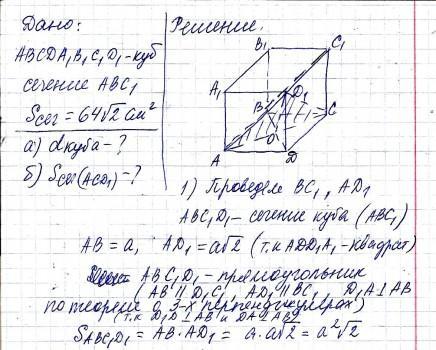 Дано:
ABCDA₁B₁C₁D₁ - куб
сечение ABC₁
Sсеч = 64√2 см²
а) dкуба - ?
б) Sсеч(ACD₁) - ?
Решение.
B₁
C₁
A₁
D₁
B
C
O
A
D
1) Проведём BC₁, AD₁
ABC₁D₁ - сечение куба (ABC₁)
AB = a, AD₁ = a√2 (т.к ADD₁A₁ - квадрат)
ABC₁D₁ - прямоугольник
(AB || D₁C₁, AD₁ || BC₁, D₁A ⊥ AB
по теореме о 3-х перпендикулярах)
(т.к D₁D ⊥ AB и DA ⊥ AB)
SABC₁D₁ = AB · AD₁ = a · a√2 = a²√2